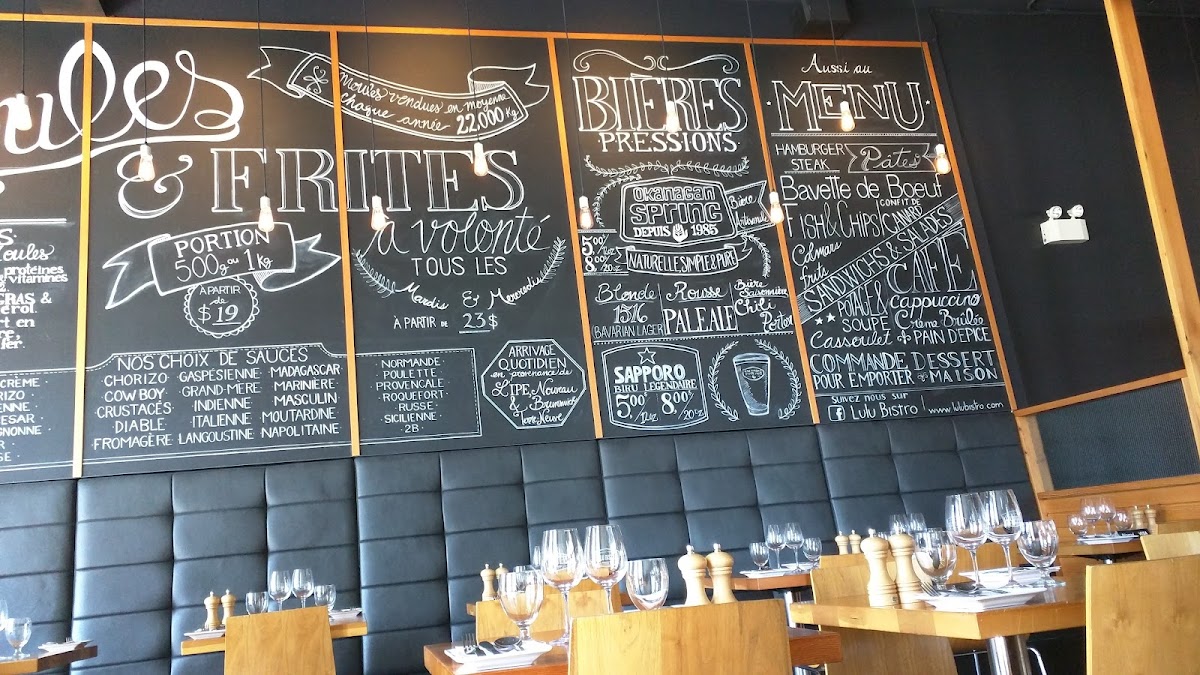 ules
& FRITES
Moules vendues en moyenne
chaque année 22,000 Kg
PORTION
500g ou 1 Kg
À PARTIR
de
$19
à volonté
TOUS LES
Mardis & Mercredis
À PARTIR DE 23$
S.
oules
protéines
vitamines
GRAS &
érol.
rt en
CRÈME
RIZO
ENNE
ESAR
GNONNE
NOS CHOIX DE SAUCES
CHORIZO · GASPÉSIENNE · MADAGASCAR
COW BOY · GRAND-MÈRE · MARINIÈRE
CRUSTACÉS · INDIENNE · MASCULIN
DIABLE · ITALIENNE · MOUTARDINE
FROMAGÈRE · LANGOUSTINE · NAPOLITAINE
NORMANDE
POULETTE
PROVENCALE
ROQUEFORT
RUSSE
SICILIENNE
· 2B ·
ARRIVAGE
QUOTIDIEN
en provenance de
L'ÎPE, Nouveau
& Brunswick
Terre Neuve
BIÈRES
· PRESSIONS ·
OKANAGAN
SPRING
DEPUIS 1985
Bière
Artisanale
5.00/12oz
8.00/20oz
NATURELLE SIMPLE & PURE
Blonde
1516
BAVARIAN LAGER
Rousse
PALE ALE
Bière
Saisonnière
Chili
Porter
SAPPORO
BIRU LÉGENDAIRE
5.00 8.00
/12oz /20oz
Aussi au
· MENU ·
HAMBURGER
STEAK
Pâtes
Bavette de Boeuf
FISH & CHIPS
CONFIT DE
CANARD
Calmars
frits
SANDWICHS & SALADES
POTAGE &
SOUPE
Cassoulet
CAFÉ
Cappuccino
Crème Brûlée
PAIN D'ÉPICE
COMMANDE
POUR EMPORTER
DESSERT
· MAISON
SUIVEZ NOUS SUR
f Lulu Bistro | www.lulubistro.com